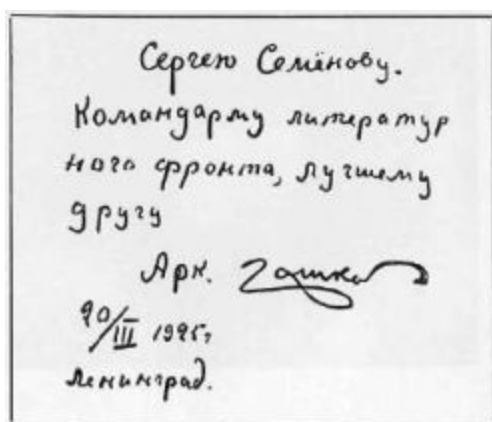 Сергею Семёнову.
Командарму литератур
ного фронта, лучшему
другу
Арк.
20/III 1925г
Ленинград.